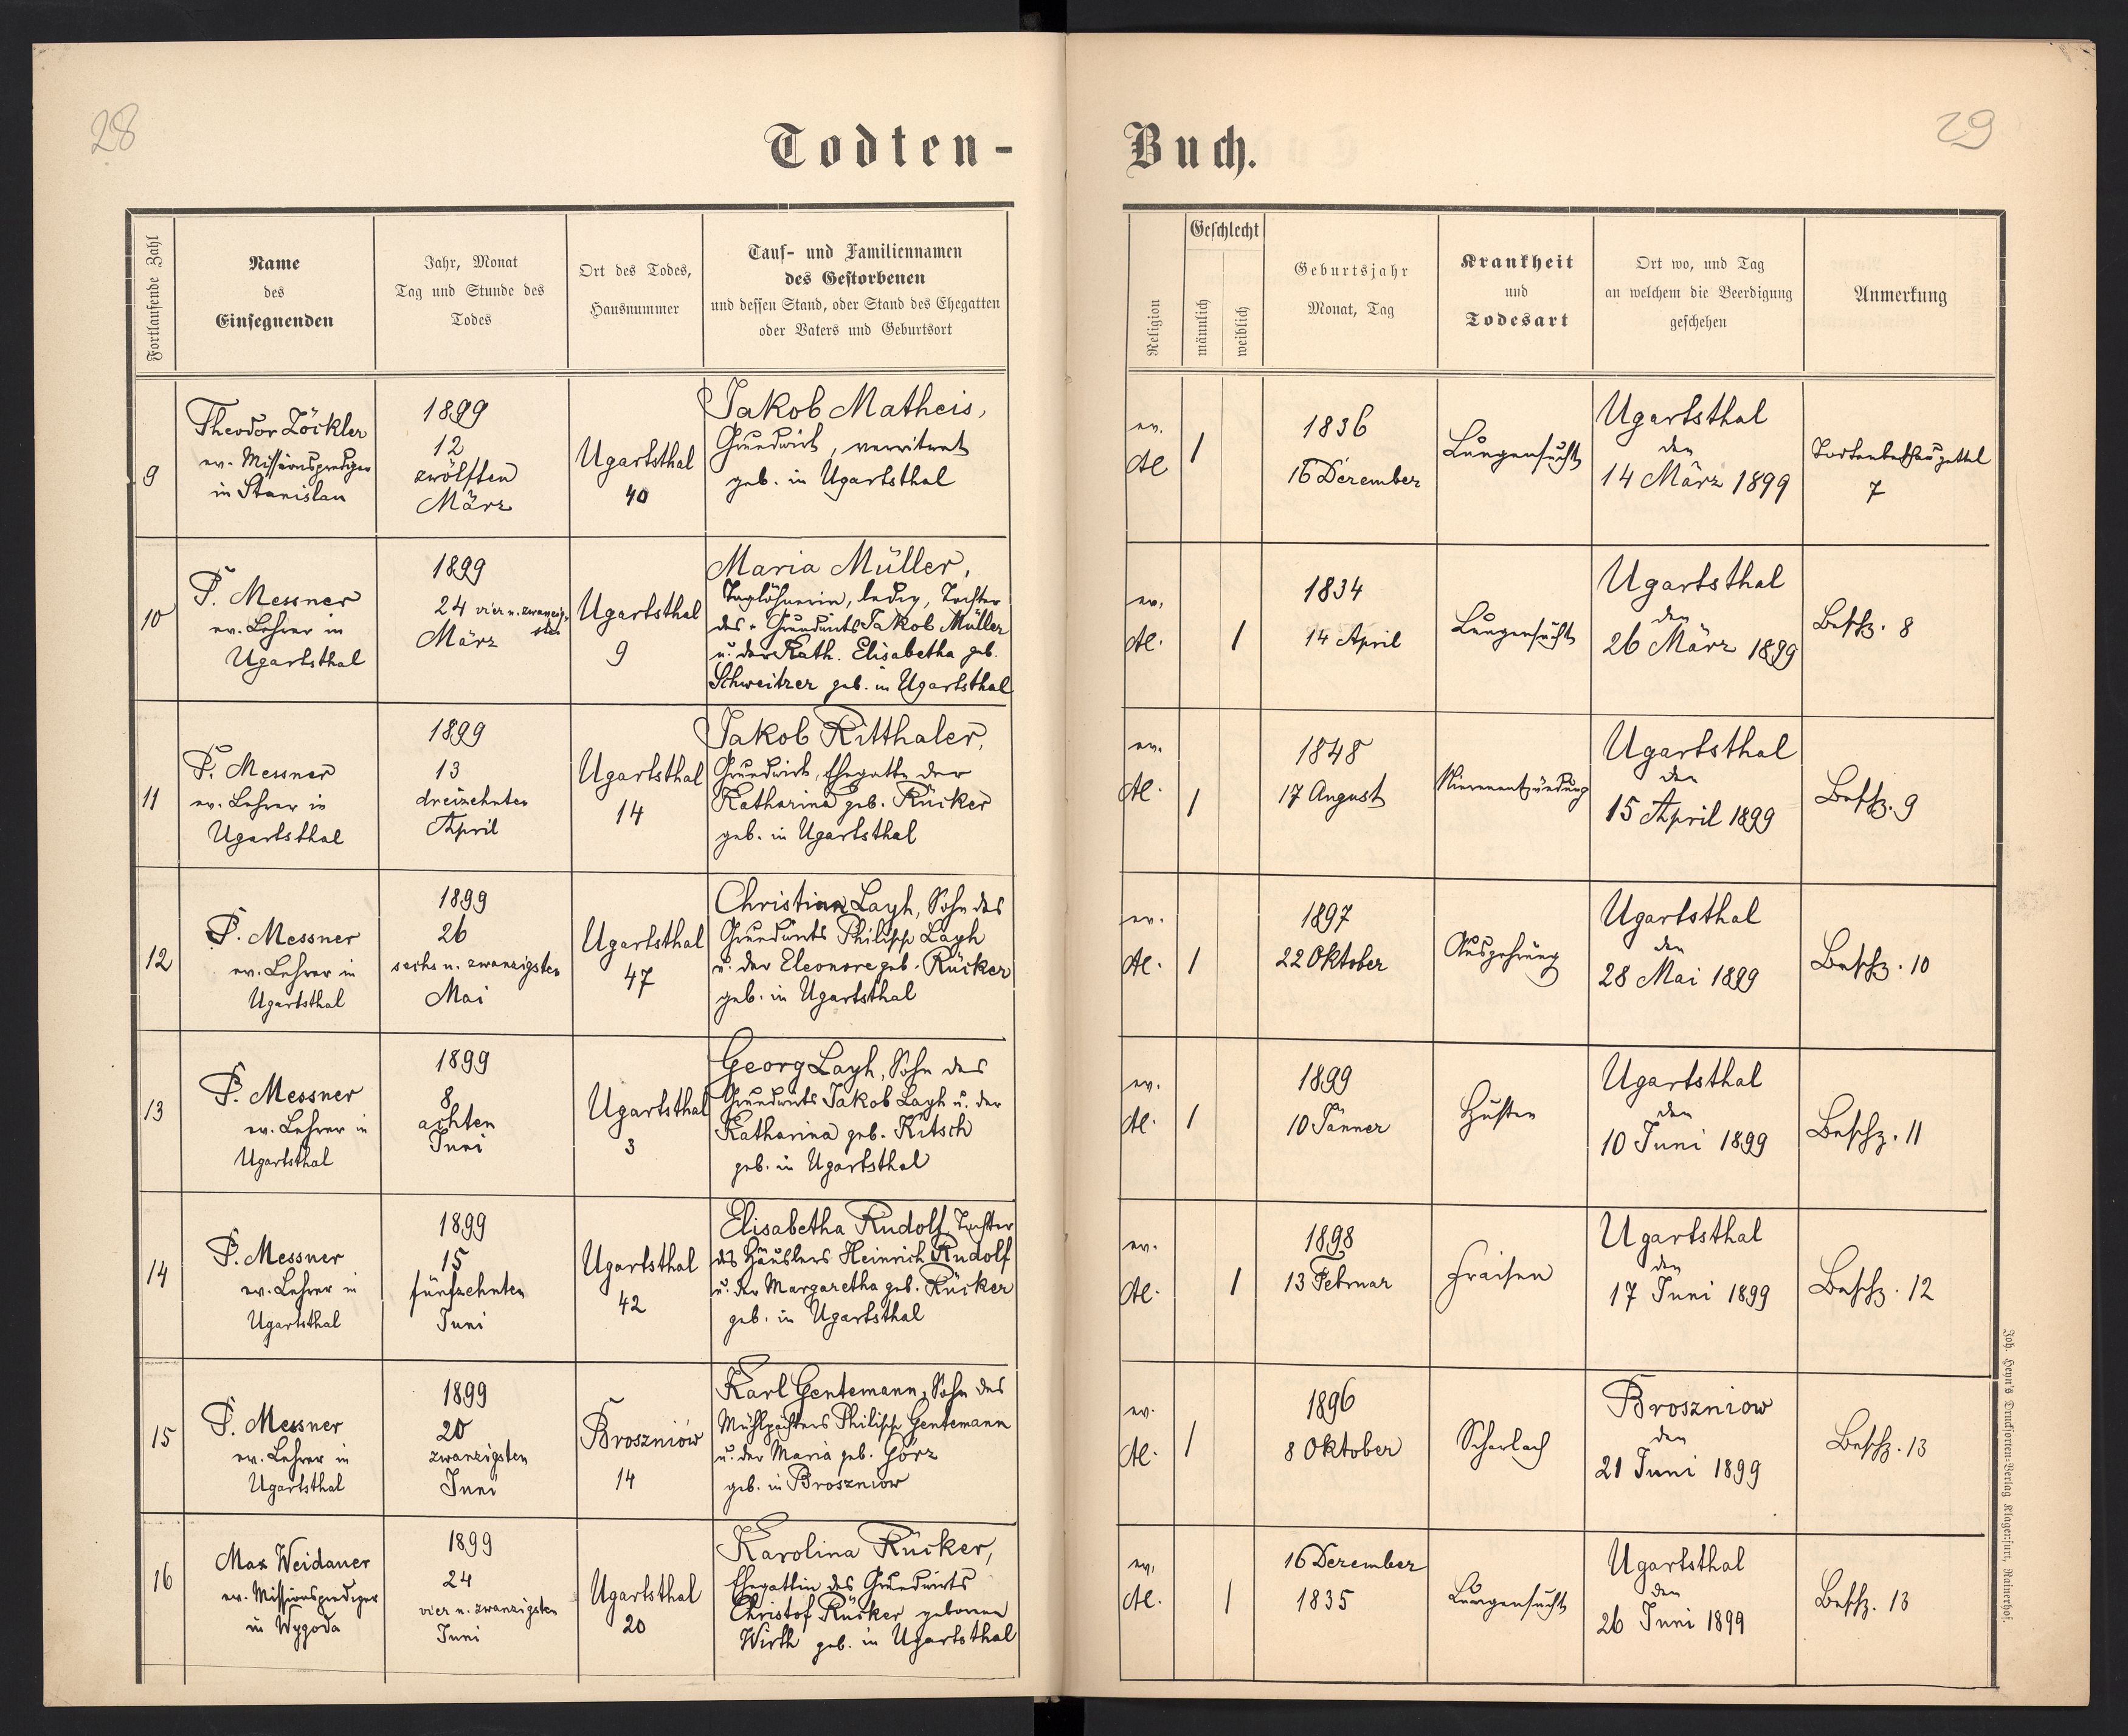 28
29
Todten-
Buch.
Fortlaufende Zahl
Name
des
Einsegnenden
Jahr, Monat
Tag und Stunde des
Todes
Ort des Todes,
Hausnummer
Tauf- und Familiennamen
des Gestorbenen
und dessen Stand, oder Stand des Ehegatten
oder Vaters und Geburtsort
Religion
Geschlecht
männlich
weiblich
Geburtsjahr
Monat, Tag
Krankheit
und
Todesart
Ort wo, und Tag
an welchem die Beerdigung
geschehen
Anmerkung
9
Theodor Zöckler
ev. Missionsprediger
in Stanislau
1899
12
zwölften
März
Ugartsthal
40
Jakob Matheis,
Grundwirt, verwitwet
geb. in Ugartsthal
ev.
Al
1
1836
16 Dezember
Lungensucht
Ugartsthal
den
14 März 1899
Todtenbeschauzettel
7
10
P. Messner
ev. Lehrer in
Ugartsthal
1899
24 vier u. zwanzig-
sten
März
Ugartsthal
9
Maria Müller,
Taglöhnerin, ledig, Tochter
des Grundwirts Jakob Müller
u. der Kath. Elisabetha geb.
Schweitzer geb. in Ugartsthal
ev.
Al.
1
1834
14 April
Lungensucht
Ugartsthal
den
26 März 1899
Beschz. 8
11
P. Messner
ev. Lehrer in
Ugartsthal
1899
13
dreizehnten
April
Ugartsthal
14
Jakob Ritthaler,
Grundwirt, Ehegatte der
Katharina geb. Rücker
geb. in Ugartsthal
ev.
Al.
1
1848
17 August
Nierenentzündung
Ugartsthal
den
15 April 1899
Beschz. 9
12
P. Messner
ev. Lehrer in
Ugartsthal
1899
26
sechs u. zwanzigsten
Mai
Ugartsthal
47
Christian Layh, Sohn des
Grundwirts Philipp Layh
u. der Eleonore geb. Rücker
geb. in Ugartsthal
ev.
Al.
1
1897
22 Oktober
Auszehrung
Ugartsthal
den
28 Mai 1899
Beschz. 10
13
P. Messner
ev. Lehrer in
Ugartsthal
1899
8
achten
Juni
Ugartsthal
3
Georg Layh, Sohn des
Grundwirts Jakob Layh u. der
Katharina geb. Ritsch
geb. in Ugartsthal
ev.
Al.
1
1899
10 Jänner
Husten
Ugartsthal
den
10 Juni 1899
Beschz. 11
14
P. Messner
ev. Lehrer in
Ugartsthal
1899
15
fünfzehnten
Juni
Ugartsthal
42
Elisabetha Rudolf, Tochter
des Häuslers Heinrich Rudolf
u. der Margaretha geb. Rücker
geb. in Ugartsthal
ev.
Al.
1
1898
13 Februar
Fraisen
Ugartsthal
den
17 Juni 1899
Beschz. 12
15
P. Messner
ev. Lehrer in
Ugartsthal
1899
20
zwanzigsten
Juni
Broszniów
14
Karl Gentemann, Sohn des
Mühlpächters Philipp Gentemann
u. der Maria geb. Görz
geb. in Broszniow
ev.
Al.
1
1896
8 Oktober
Scharlach
Broszniow
den
21 Juni 1899
Beschz. 13
16
Max Weidauer
ev. Missionsprediger
in Wygoda
1899
24
vier u. zwanzigsten
Juni
Ugartsthal
20
Karolina Rücker,
Ehegattin des Grundwirts
Christof Rücker geborene
Wirth geb. in Ugartsthal
ev.
Al.
1
16 Dezember
1835
Lungensucht
Ugartsthal
den
26 Juni 1899
Beschz. 13
Joh. Heyn's Drucksorten-Verlag Klagenfurt, Rainerhof.